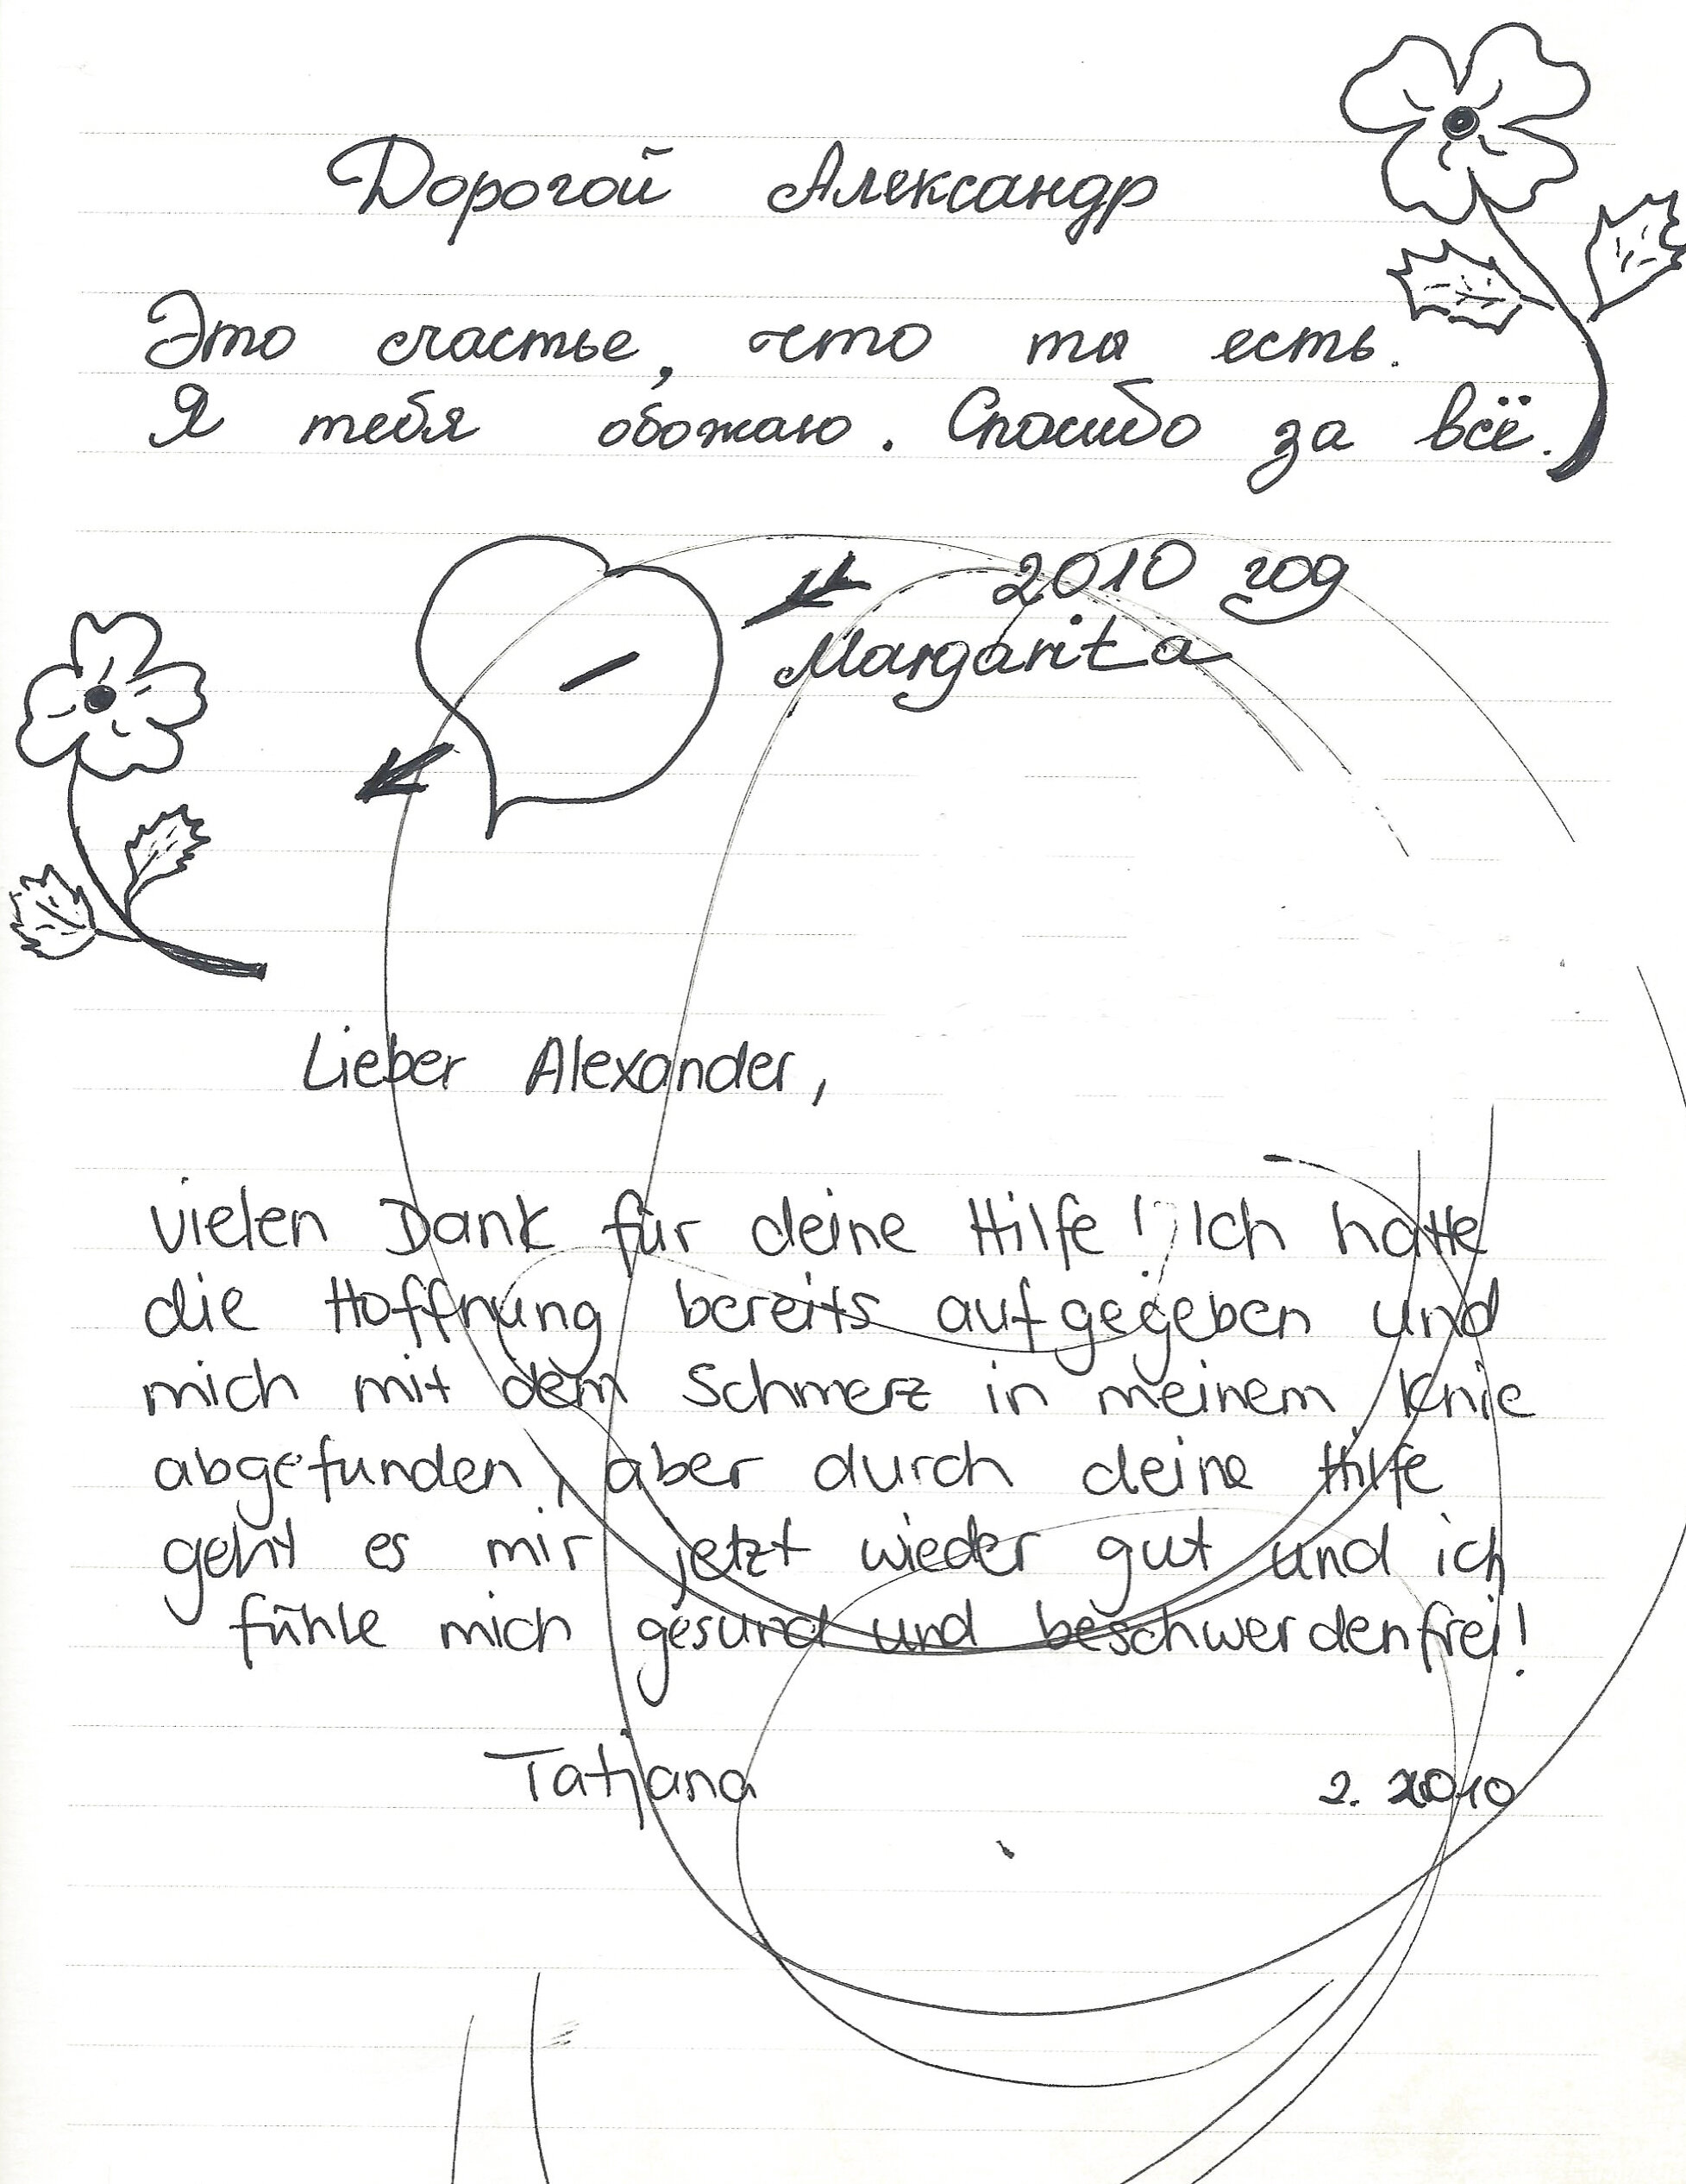 Дорогой Александр
Это счастье, что ты есть.
Я тебя обожаю. Спасибо за всё.
2010 год
Margarita
Lieber Alexander,
vielen Dank für deine Hilfe! Ich hatte
die Hoffnung bereits aufgegeben und
mich mit dem Schmerz in meinem Knie
abgefunden, aber durch deine Hilfe
geht es mir jetzt wieder gut und ich
fühle mich gesund und beschwerdenfrei!
Tatjana 2. 2010